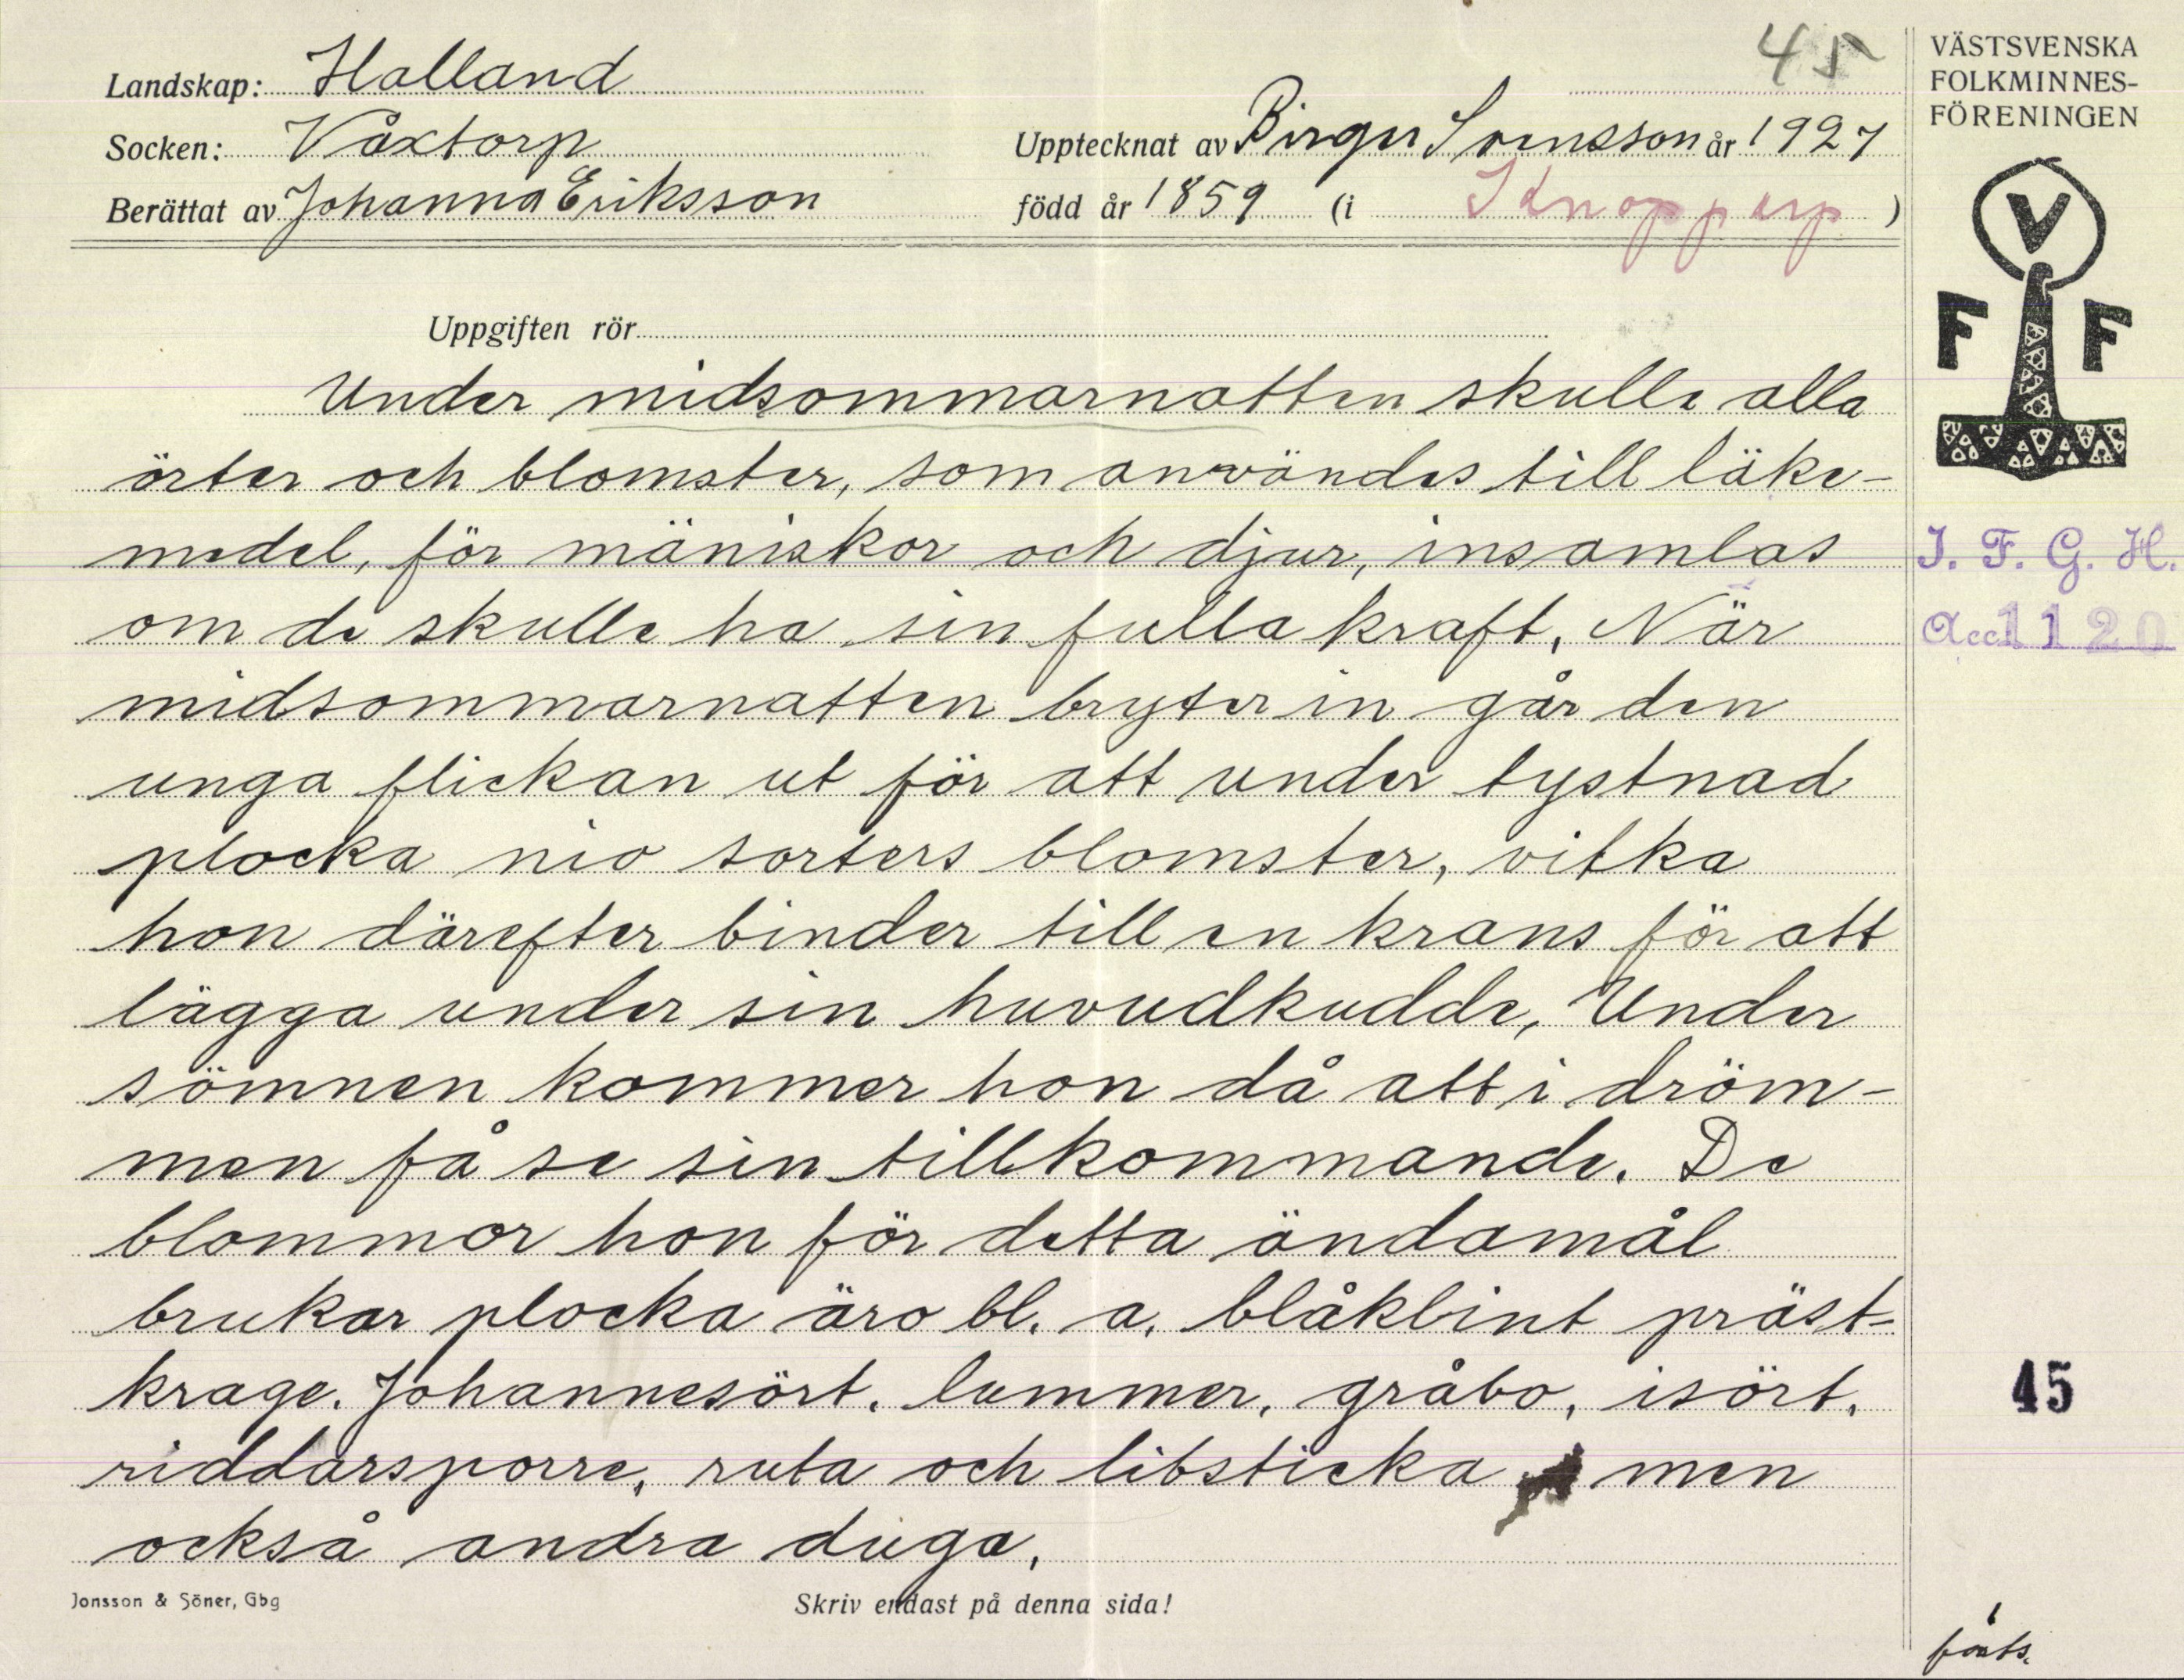 45
Landskap: Halland
Socken: Våxtorp
Upptecknat av Birger Svensson år 1927
Berättat av Johanna Eriksson
född år 1859 (i Knopparp)
VÄSTSVENSKA
FOLKMINNES-
FÖRENINGEN
V
F F
I. F. G. H.
Acc 1120
Uppgiften rör
Under midsommarnatten skulle alla
örter och blomster, som användes till läke-
medel, för mäniskor och djur, insamlas
om de skulle ha sin fulla kraft. När
midsommarnatten bryter in går den
unga flickan ut för att under tystnad
plocka nio sorters blomster, vilka
hon därefter binder till en krans för att
lägga under sin huvudkudde, Under
sömnen kommer hon då att i dröm-
men få se sin tillkommande. De
blommor hon för detta ändamål
brukar plocka äro bl. a. blåklint präst-
krage. Johannesört. lummer, gråbo, isört,
riddarsporre, ruta och libsticka men
också andra duga.
45
Jonsson & Söner, Gbg
Skriv endast på denna sida!
forts.